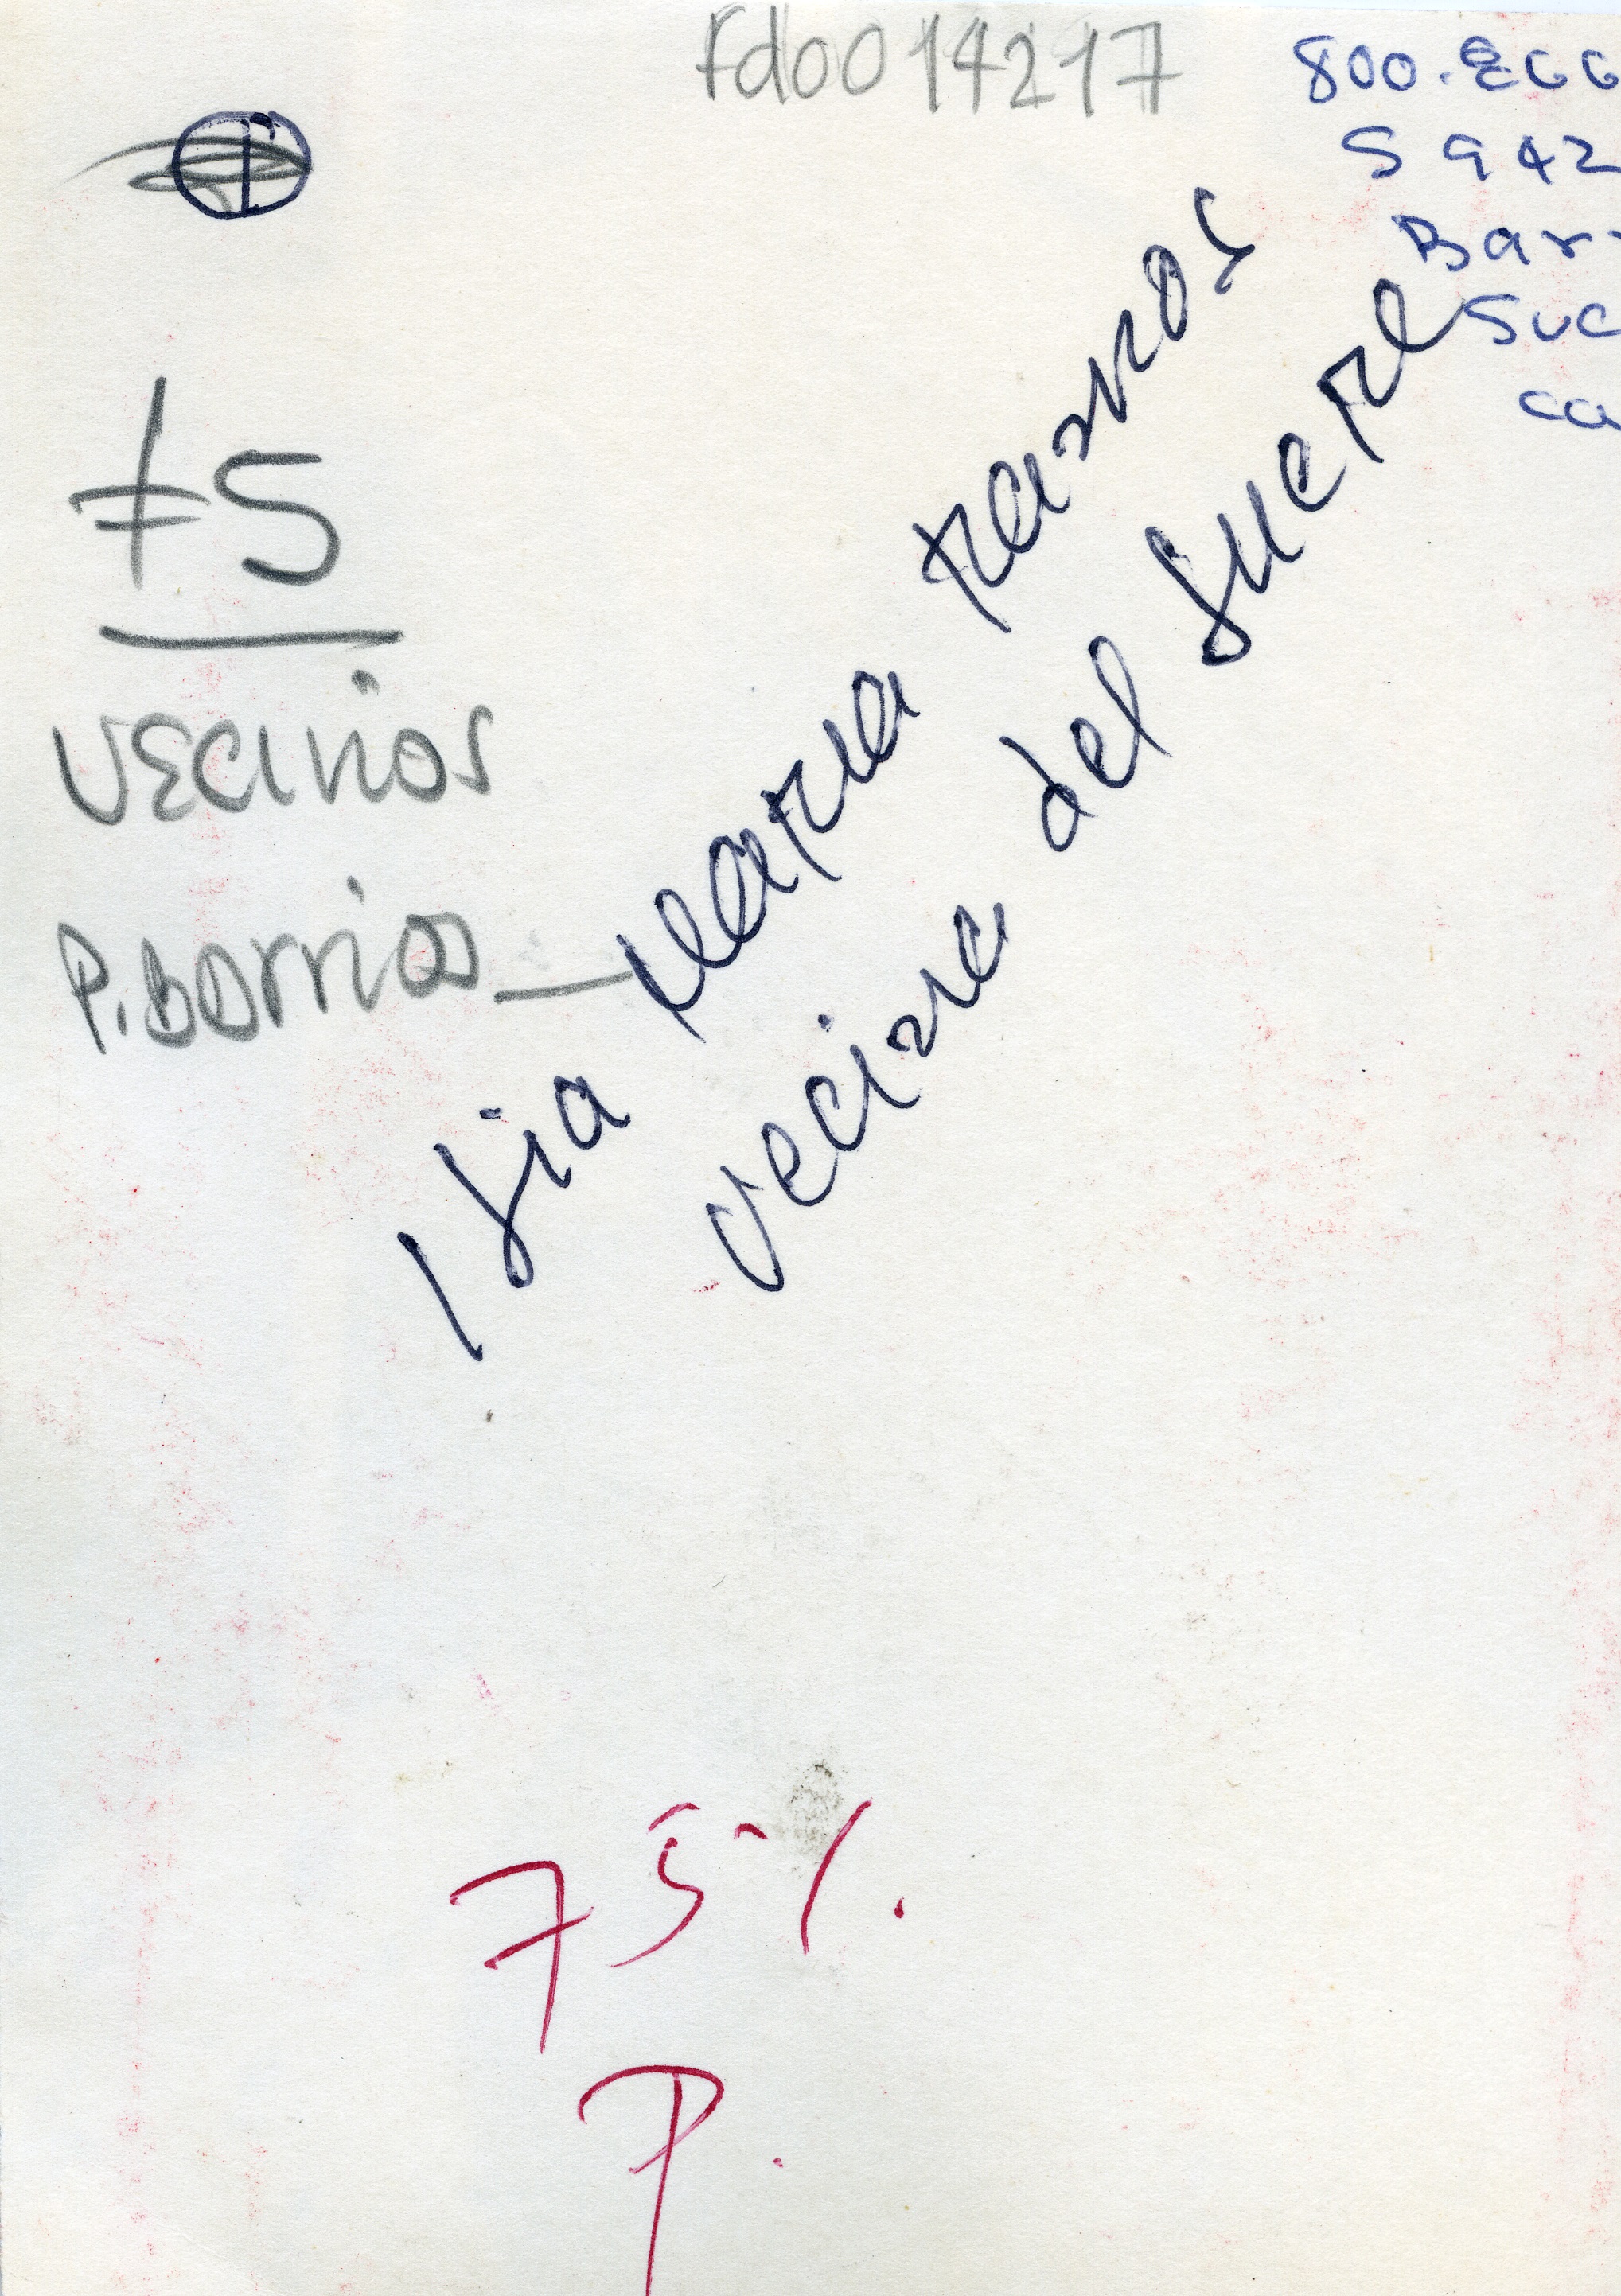 rd0014217
800.ECC
S 942
Barr
Suc
ca
1
+5
VECINOS
P. BARRIOS
1 Sra Maria Ramos
vecina del Sucre
75%.
P.